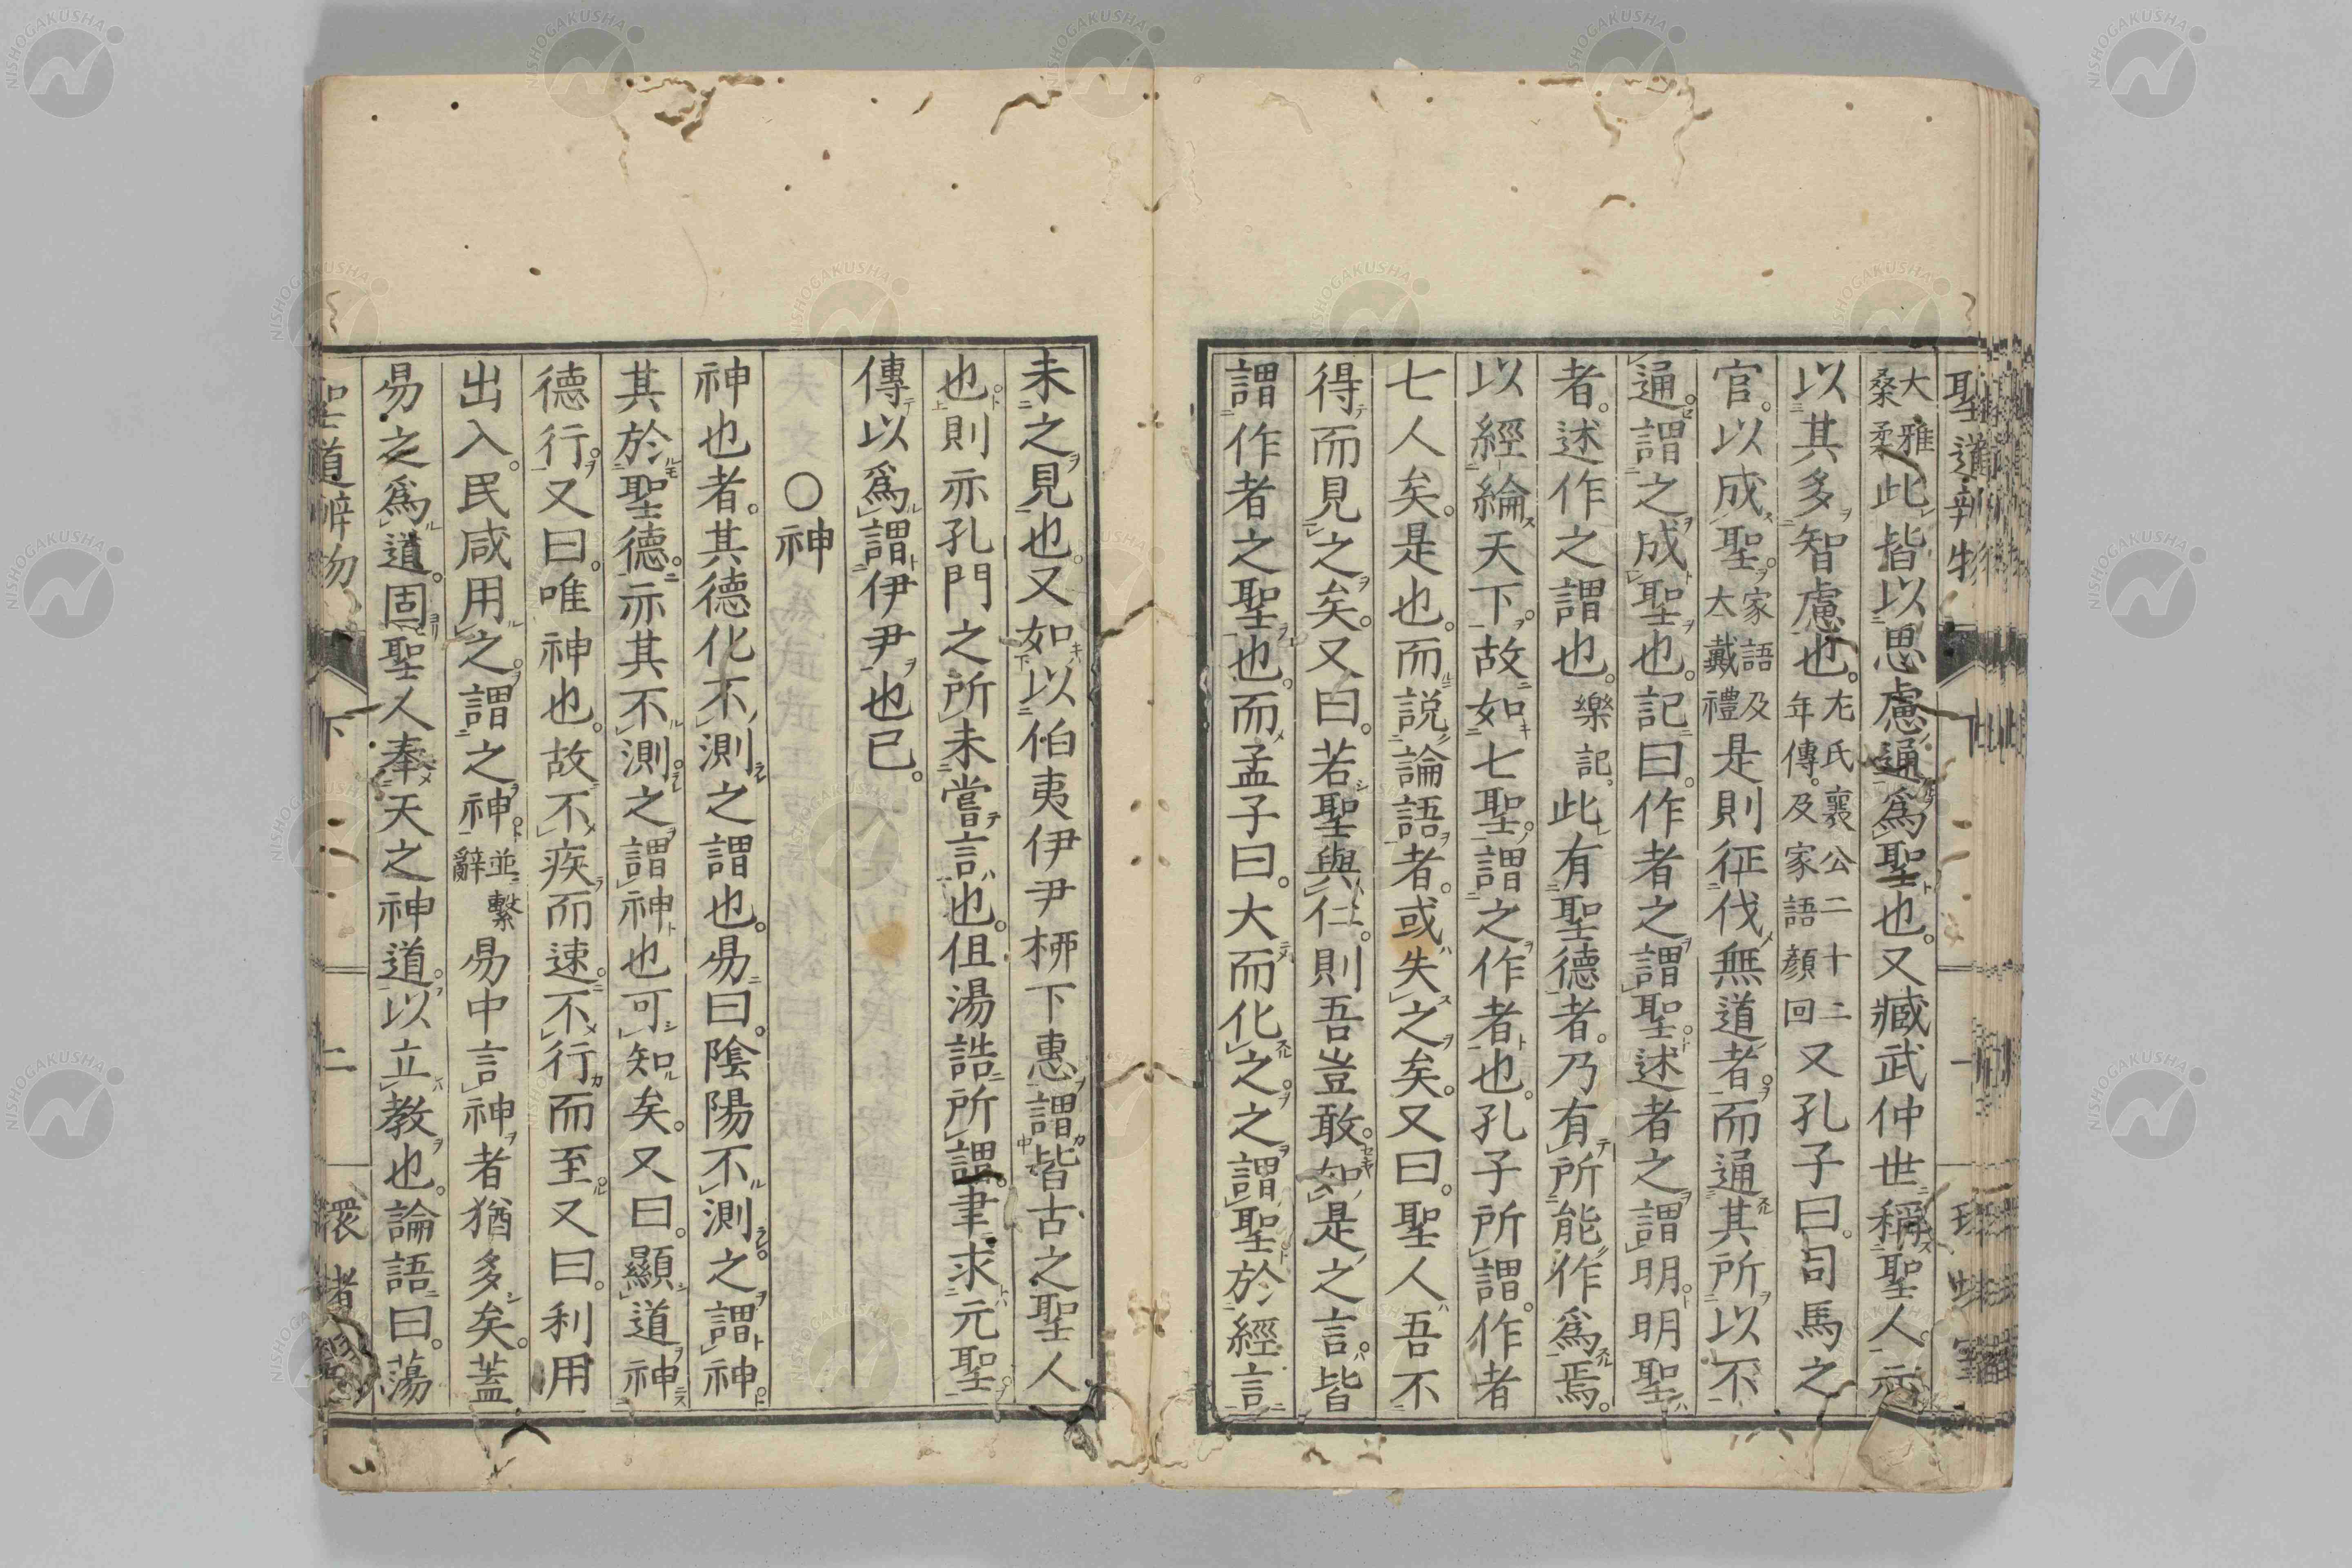 大雅桑柔此皆以思慮通爲聖也。又臧武仲世稱聖人。亦
以其多智慮也。左氏襄公二十二年傳。及家語顏回又孔子曰。司馬之
官。以成聖。家語及大戴禮是則征伐無道者。而通其所以不
通。謂之成聖也。記曰。作者之謂聖。述者之謂明。明聖
者。述作之謂也。樂記。此有聖德者。乃有所能作爲焉。
以經綸天下。故如七聖。謂之作者也。孔子所謂。作者
七人矣。是也。而說論語者。或失之矣。又曰。聖人吾不
得而見之矣。又曰。若聖與仁。則吾豈敢。如是之言。皆
謂作者之聖也。而孟子曰。大而化之。之謂聖。於經言
未之見也。又如以伯夷伊尹柳下惠。謂皆古之聖人
也。則亦孔門之所未嘗言也。但湯誥所謂。聿求元聖。
傳以爲謂伊尹也已。
○神
神也者。其德化不測之謂也。易曰。陰陽不測。之謂神。
其於聖德。亦其不測。之謂神也可知矣。又曰。顯道神
德行。又曰。唯神也。故不疾而速。不行而至。又曰。利用
出入。民咸用之。謂之神。並繫辭易中言神者猶多矣。蓋
易之爲道。固聖人奉天之神道。以立教也。論語曰。蕩
聖道辨物
下
二
環堵室